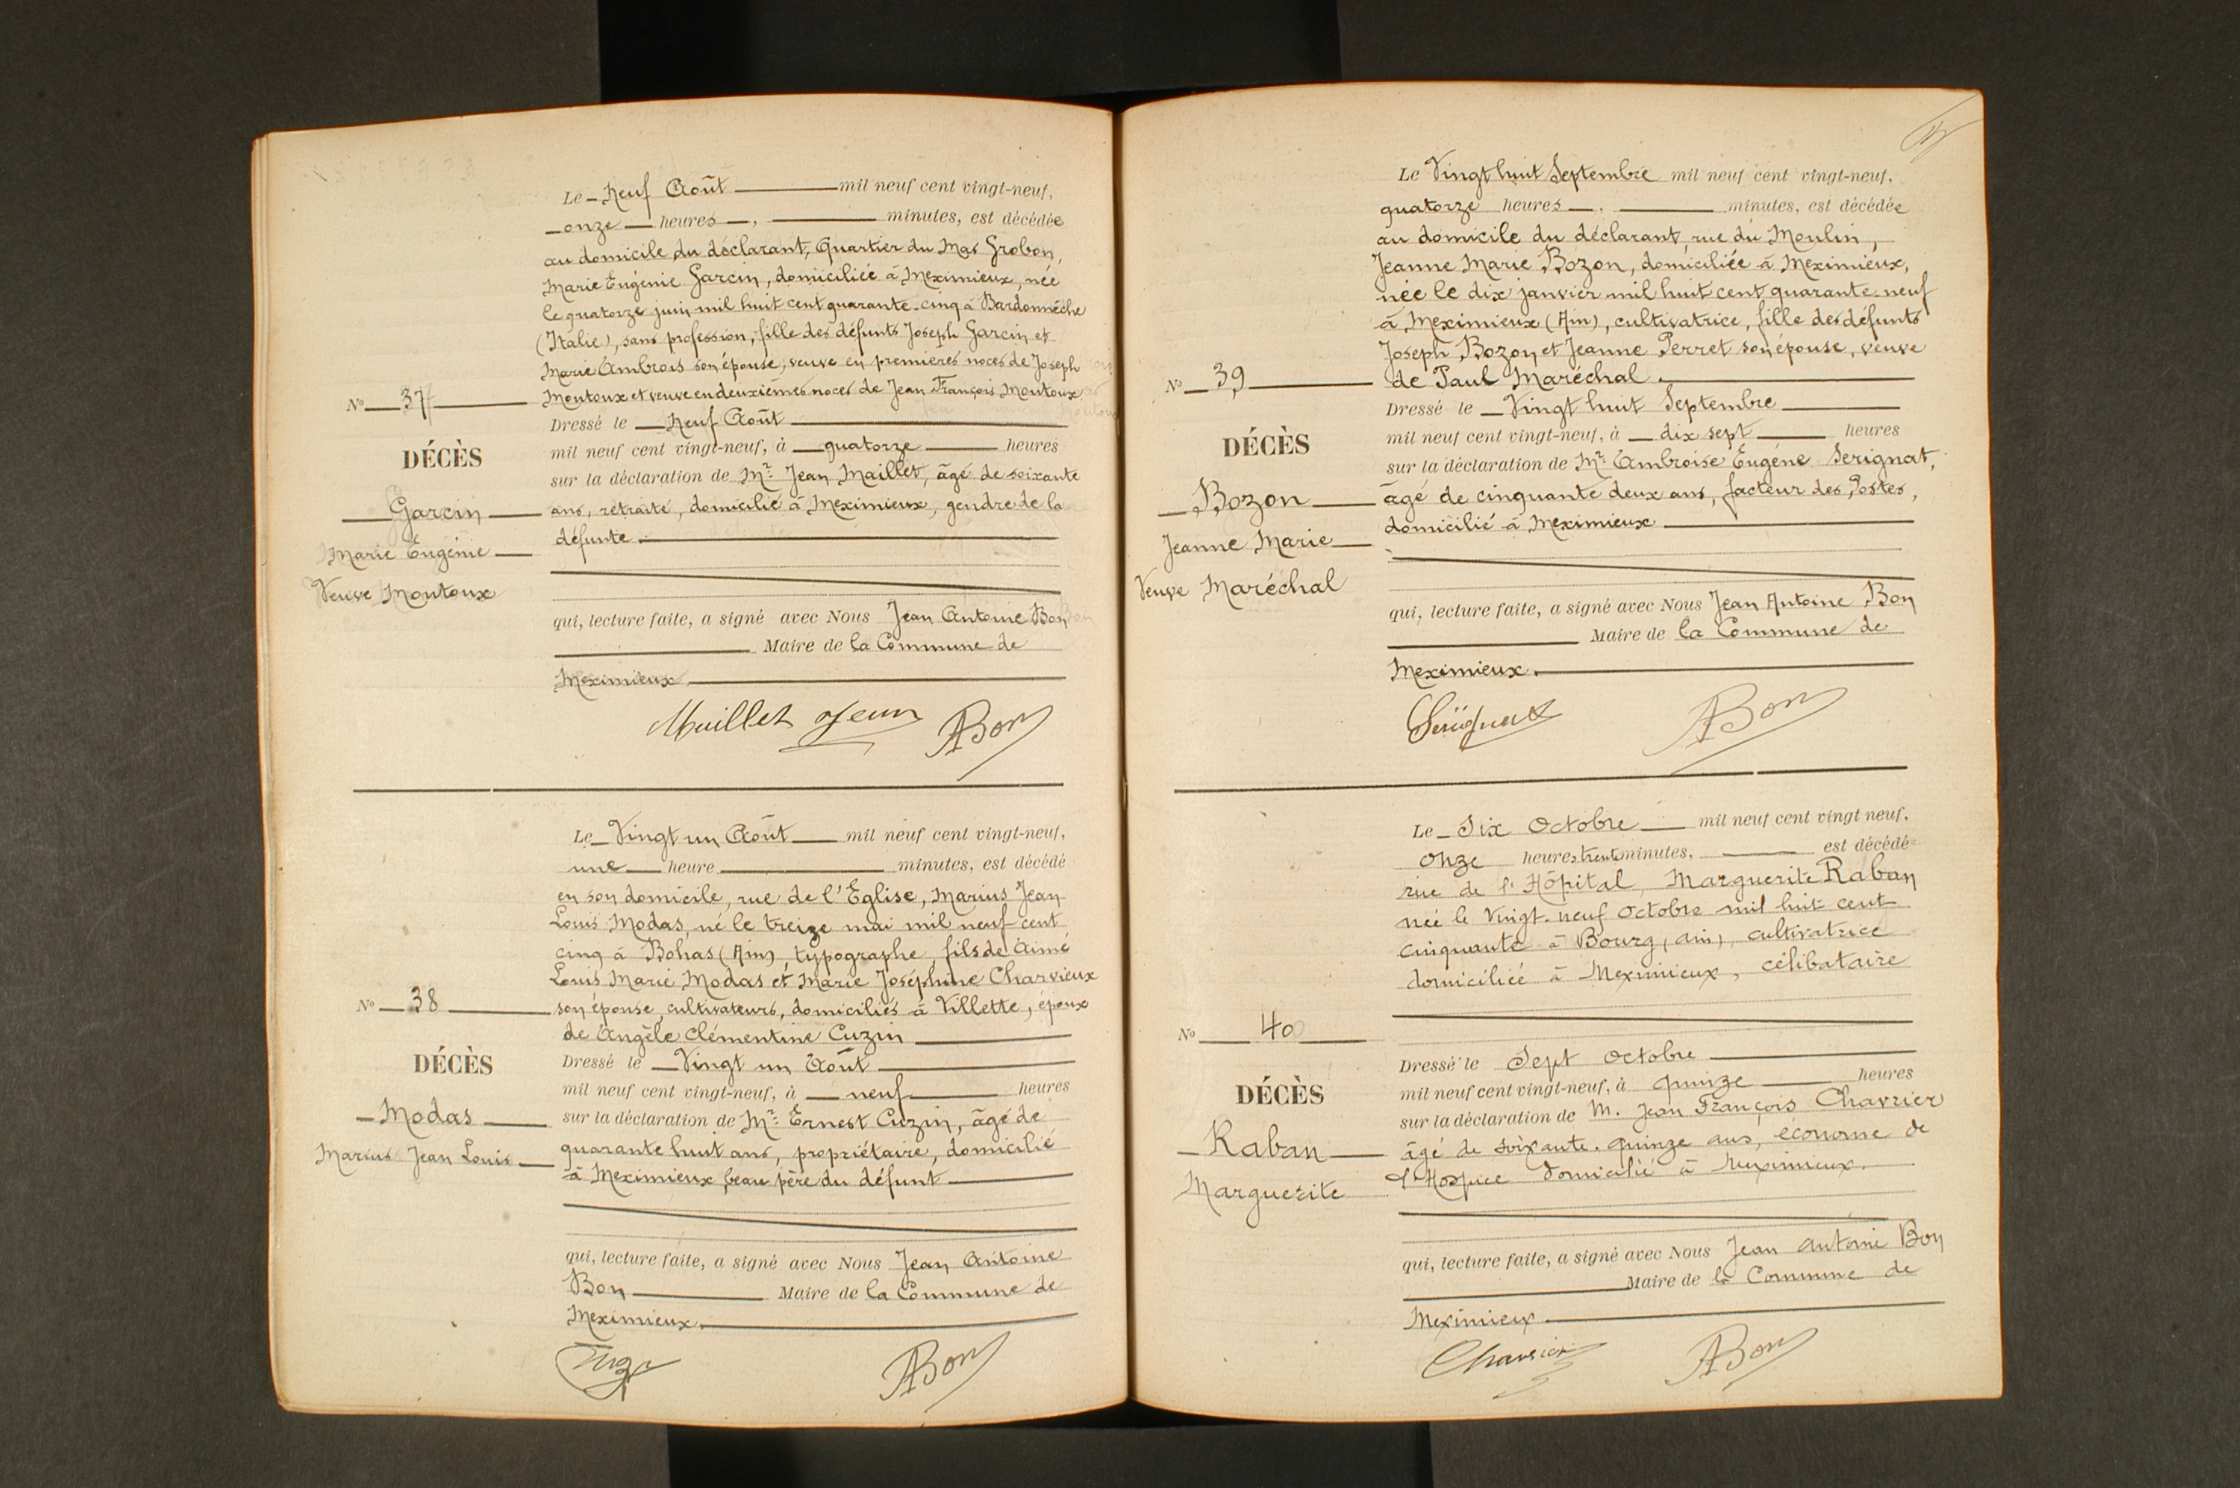 Le Neuf Août mil neuf cent vingt-neuf,
onze heures, minutes, est décédée
au domicile du déclarant, Quartier du Mas Grobon,
Marie Eugénie Garcin, domiciliée à Meximieux, née
le quatorze juin mil huit cent quarante-cinq à Bardonnèche
(Italie), sans profession, fille des défunts Joseph Garcin et
Marie Ambrois son épouse, veuve en premières noces de Joseph
Nº 37 Montoux et veuve en deuxièmes noces de Jean François Montoux
Dressé le Neuf Août
DÉCÈS mil neuf cent vingt-neuf, à quatorze heures
sur la déclaration de Mr Jean Maillet, âgé de soixante
Garcin ans, retraité, domicilié à Meximieux, gendre de la
Marie Eugénie défunte.
Veuve Montoux
qui, lecture faite, a signé avec Nous Jean Antoine Bon
Maire de la Commune de
Meximieux
Maillet Jean ABon
Le Vingt un Août mil neuf cent vingt-neuf,
une heure minutes, est décédé
en son domicile, rue de l'Eglise, Marius Jean
Louis Modas, né le treize mai mil neuf cent
cinq à Bohas (Ain), typographe, fils de Aimé
Louis Marie Modas et Marie Joséphine Charvieux
Nº 38 son épouse, cultivateurs, domiciliés à Villette, époux
de Angèle Clémentine Cuzin
DÉCÈS Dressé le Vingt un Août
mil neuf cent vingt-neuf, à neuf heures
Modas sur la déclaration de Mr Ernest Cuzin, âgé de
Marius Jean Louis quarante huit ans, propriétaire, domicilié
à Meximieux, beau père du défunt
qui, lecture faite, a signé avec Nous Jean Antoine
Bon Maire de la Commune de
Meximieux.
ABon
Le Vingt huit Septembre mil neuf cent vingt-neuf,
quatorze heures, minutes, est décédée
au domicile du déclarant, rue du Moulin,
Jeanne Marie Bozon, domiciliée à Meximieux,
née le dix janvier mil huit cent quarante-neuf
à Meximieux (Ain), cultivatrice, fille des défunts
Joseph Bozon et Jeanne Perret son épouse, veuve
Nº 39 de Paul Maréchal.
Dressé le Vingt huit Septembre
DÉCÈS mil neuf cent vingt-neuf, à dix sept heures
sur la déclaration de Mr Ambroise Eugène Serignat,
Bozon âgé de cinquante deux ans, facteur des Postes,
Jeanne Marie domicilié à Meximieux
Veuve Maréchal
qui, lecture faite, a signé avec Nous Jean Antoine Bon
Maire de la Commune de
Meximieux.
Serignat ABon
Le Six Octobre mil neuf cent vingt neuf,
onze heures trente minutes, est décédée
rue de l'Hôpital, Marguerite Raban
née le Vingt-neuf octobre mil huit cent
cinquante à Bourg (Ain), cultivatrice
domiciliée à Meximieux, célibataire
Nº 40
Dressé le Sept octobre
DÉCÈS mil neuf cent vingt-neuf, à quinze heures
sur la déclaration de M. Jean François Chavrier
Raban âgé de soixante-quinze ans, économe de
Marguerite l'Hospice domicilié à Meximieux.
qui, lecture faite, a signé avec Nous Jean Antoine Bon
Maire de la Commune de
Meximieux
Chavrier ABon